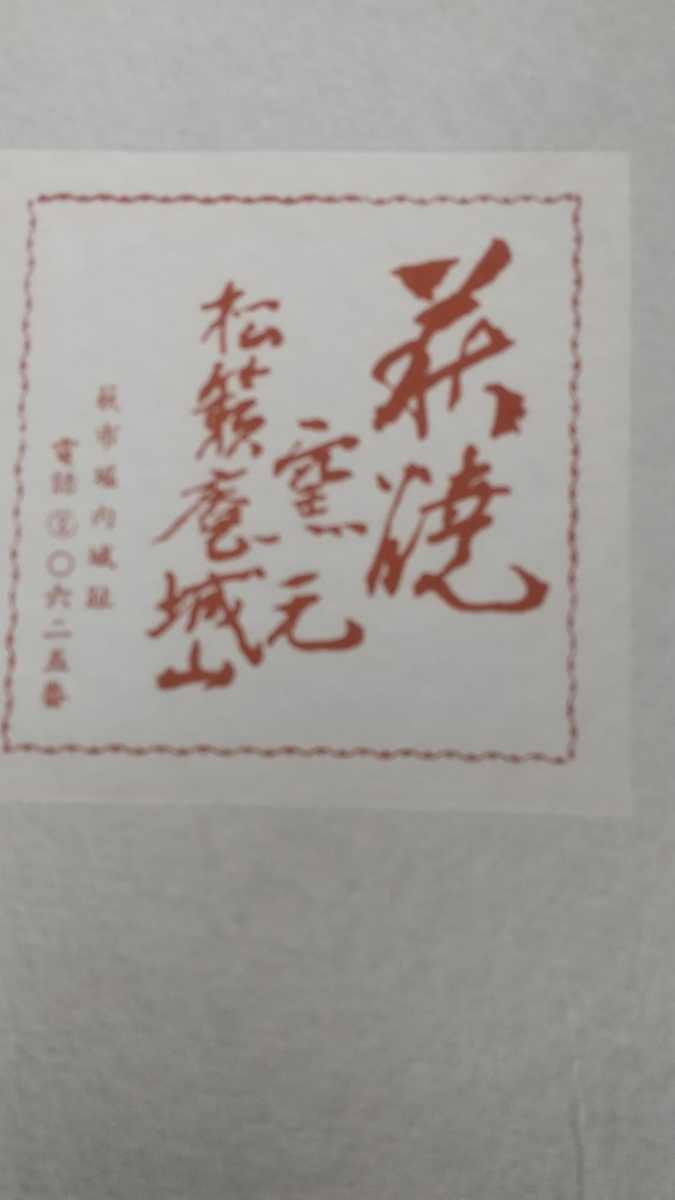 萩燒
窯元
松籟庵城山
萩市堀内城趾
電話②〇六二五番